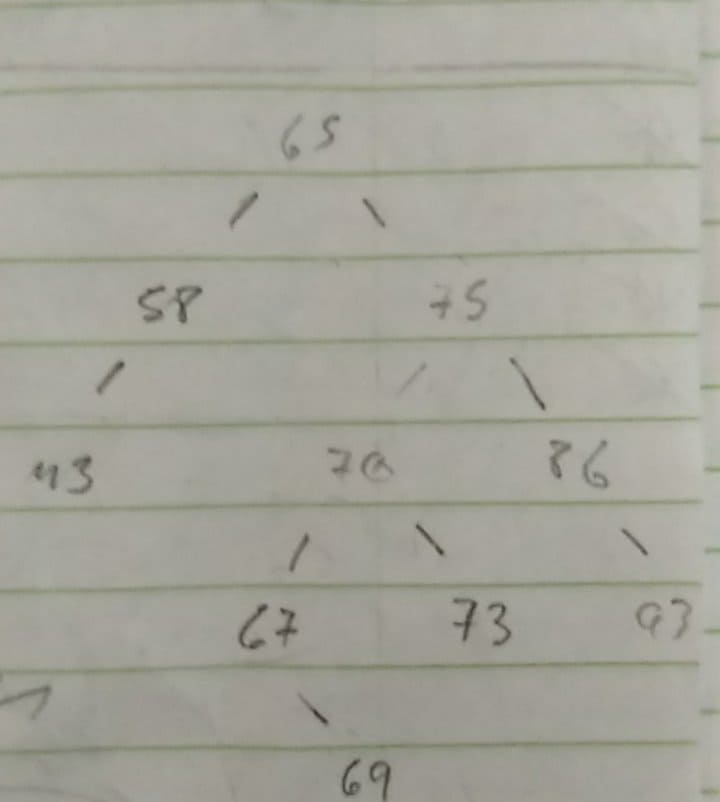 65
58 75
43 70 86
67 73 93
69